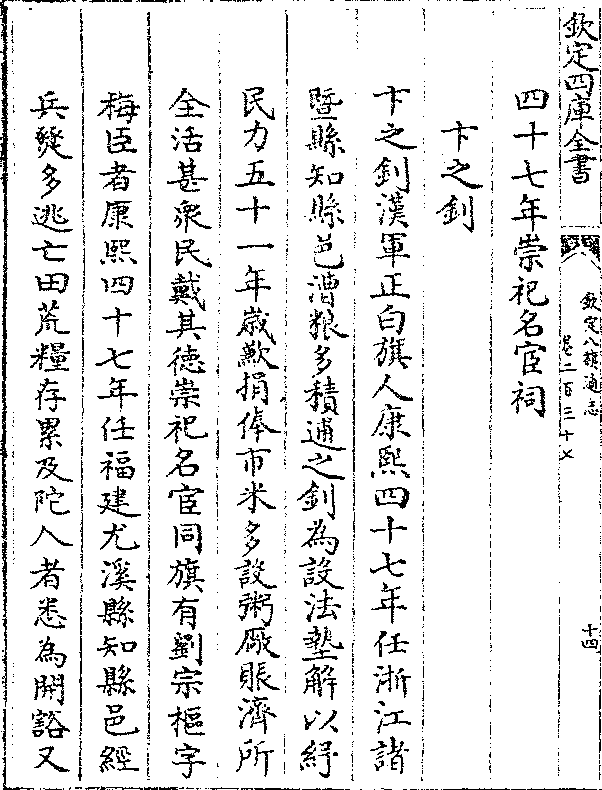 欽定四庫全書
欽定八旗通志
卷二百三十七
十四
四十七年崇祀名宦祠
卞之釗
卞之釗漢軍正白旗人康熙四十七年任浙江諸
暨縣知縣邑漕粮多積逋之釗為設法墊解以紓
民力五十一年歲歉捐俸市米多設粥廠賬濟所
全活甚衆民戴其德崇祀名宦同旗有劉宗樞字
梅臣者康熙四十七年任福建尤溪縣知縣邑經
兵燹多逃亡田荒糧存累及陀人者悉為開豁又